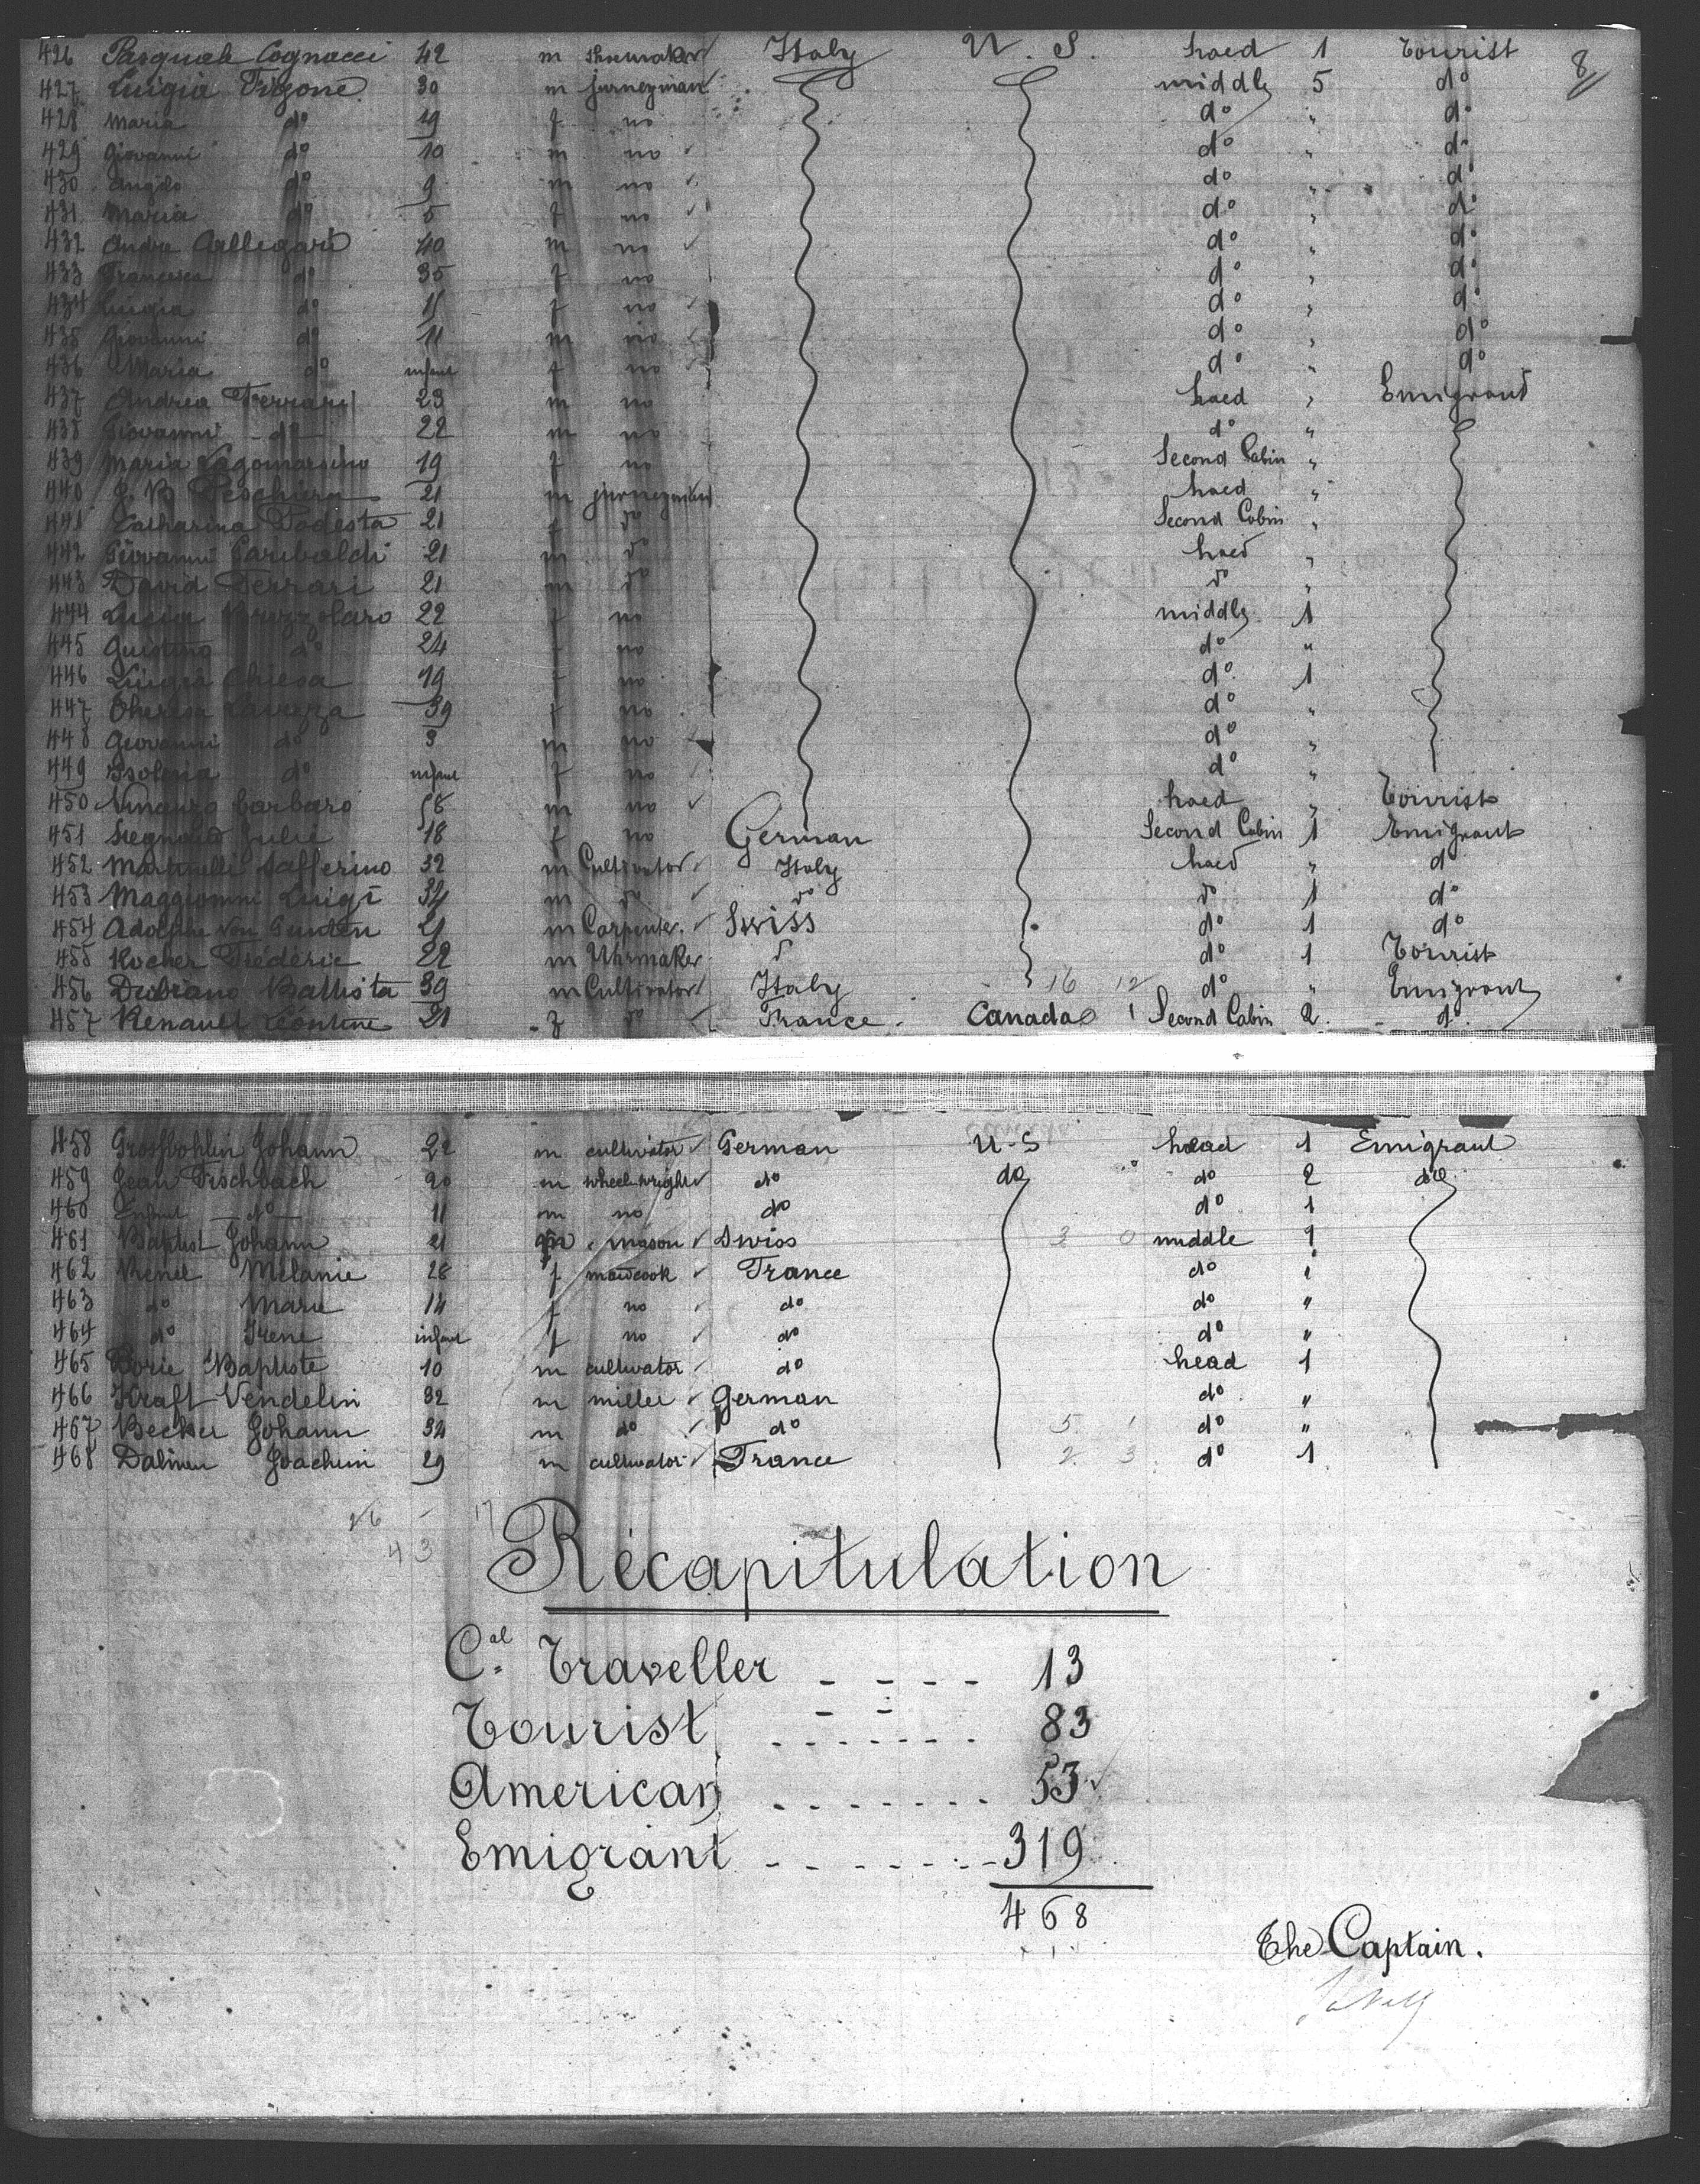 8
426 Pasquale Cognacci 42 m Shoemaker Italy U. S. haed 1 Tourist
427 Luigia Frigone 30 m jurneyman middle 5 do
428 Maria do 19 f no do " do
429 Giovanni do 10 m no do " do
430 Angelo do 9 m no do " do
431 Maria do 5 f no do " do
432 Andrea Callegari 40 m no do " do
433 Francesca do 35 f no do " do
434 Luigia do 11 f no do " do
435 Giovanni do 11 m no do " do
436 Maria do infant f no do " do
437 Andrea Ferrari 23 m no haed " Emigrant
438 Giovanni do 22 m no do "
439 Maria Lagomarsino 19 f no Second Cabin "
440 G. B Peschiera 21 m jurneyman haed "
441 Catharina Podesta 21 f do Second Cabin "
442 Giovanni Garibaldi 21 m do haed "
443 David Ferrari 21 m do do "
444 Luisa Brezzolaro 22 f no middle 1
445 do 24 f no do "
446 Luigia Chiesa 19 f no do 1
447 Theresa Lavezza 39 f no do "
448 Giovanni do 3 m no do "
449 do infant f no do "
450 Vincenzo Carbaro 58 m no haed " Tourist
451 Regnault Julie 18 f no German Second Cabin 1 Emigrant
452 Martinelli Safferino 32 m Cultivator Italy haed " do
453 Maggiomni Luigi 34 m do do do 1 do
454 Adolphe Von Gunten 21 m Carpenter Swiss do 1 do
455 Kocher Frédéric 22 m Uhrmaker do do 1 Tourist
456 Debiano Battista 39 m Cultivator Italy 16 12 do " Emigrant
457 Renault Léontine 21 f do France Canada 1 Second Cabin 2 do
458 Grossbohlin Johann 22 m cultivator German U-S head 1 Emigrant
459 Jean Fischbach 20 m wheelwright do do do 2 do
460 Enfant do 11 m no do do 1
461 Baptist Johann 21 m mason Swiss 3 0 middle 1
462 Renel Mélanie 28 f maidcook France do 1
463 do Marie 14 f no do do "
464 do Irene infant f no do do "
465 Borie Baptiste 10 m cultivator do head 1
466 Kraft Vendelin 32 m miller German do "
467 Becker Johann 32 m do do 5 1 do "
468 Dalmeu Joachim 29 m cultivator France 2 3 do 1
26 17
43
Récapitulation
Cal Traveller 13
Tourist 83
American 53
Emigrant 319
468
The Captain.